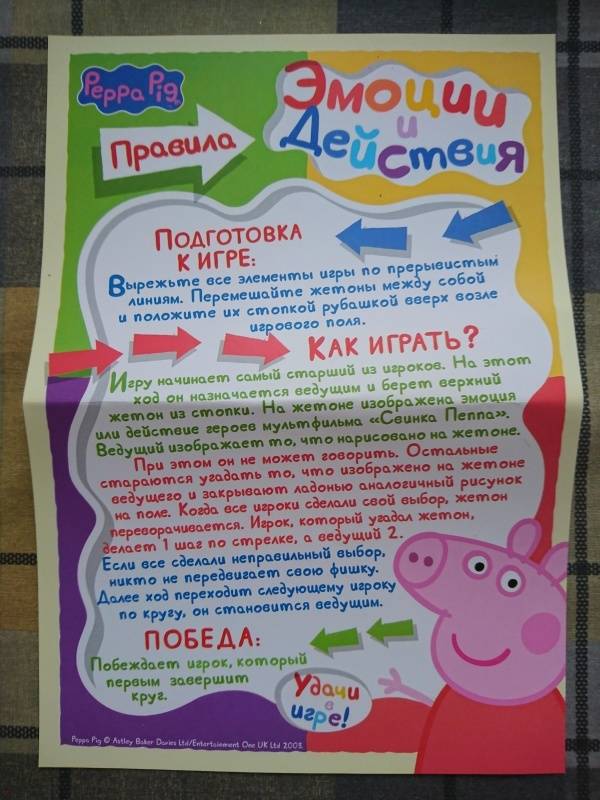 Peppa Pig
Правила
Эмоции
и
Действия
Подготовка
к игре:
Вырежьте все элементы игры по прерывистым
линиям. Перемешайте жетоны между собой
и положите их стопкой рубашкой вверх возле
игрового поля.
Как играть?
Игру начинает самый старший из игроков. На этот
ход он назначается ведущим и берет верхний
жетон из стопки. На жетоне изображена эмоция
или действие героев мультфильма «Свинка Пеппа».
Ведущий изображает то, что нарисовано на жетоне.
При этом он не может говорить. Остальные
стараются угадать то, что изображено на жетоне
ведущего и закрывают ладонью аналогичный рисунок
на поле. Когда все игроки сделали свой выбор, жетон
переворачивается. Игрок, который угадал жетон,
делает 1 шаг по стрелке, а ведущий 2.
Если все сделали неправильный выбор,
никто не передвигает свою фишку.
Далее ход переходит следующему игроку
по кругу, он становится ведущим.
ПОБЕДА:
Побеждает игрок, который
первым завершит
круг.
Удачи
в
игре!
Peppa Pig © Astley Baker Davies Ltd/Entertainment One UK Ltd 2003.